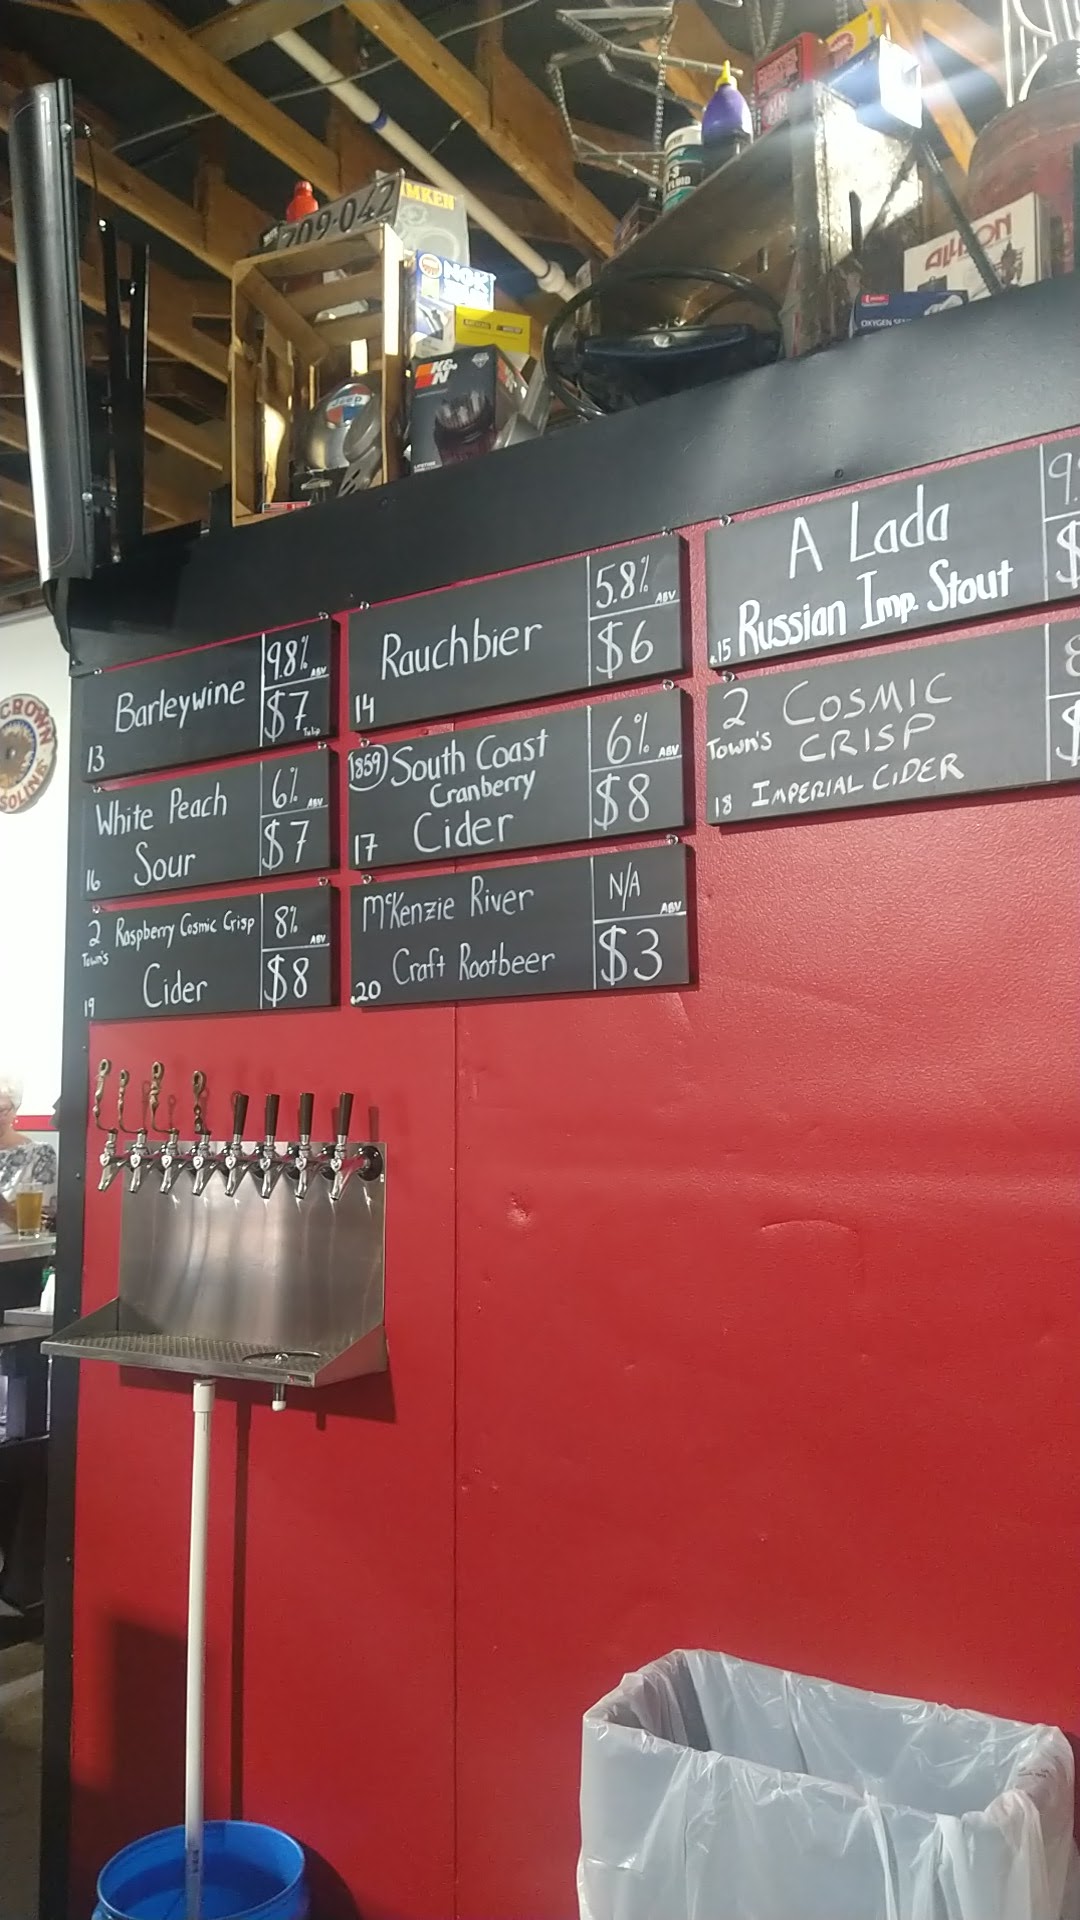 709·042
NGK
K&N
Jeep
OXYGEN
CROWN
Barleywine
9.8% ABV
$7 Tulip
13
Rauchbier
5.8% ABV
$6
14
A Lada
Russian Imp. Stout
.15
White Peach
Sour
6% ABV
$7
16
1859 South Coast
Cranberry
Cider
6% ABV
$8
17
2 COSMIC
Town's CRISP
18 IMPERIAL CIDER
2 Raspberry Cosmic Crisp
Town's
Cider
8% ABV
$8
19
McKenzie River
Craft Rootbeer
N/A ABV
$3
.20